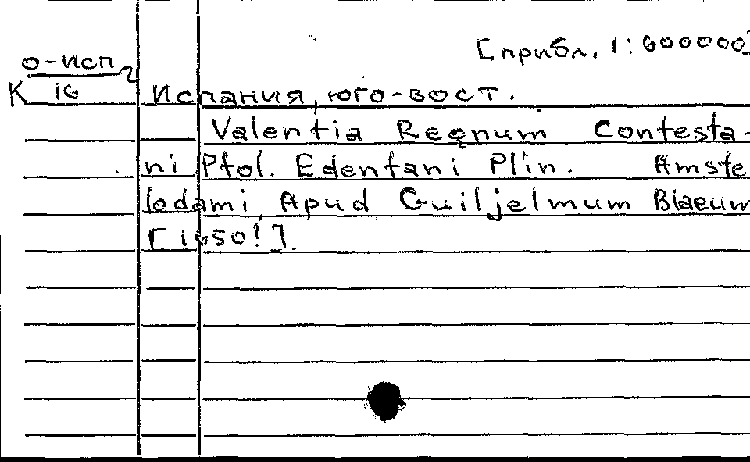 [прибл. 1:600000]
О-Исп2
К 16
Испания, юго-вост.
Valentia Regnum Contesta-
ni Ptol. Edentani Plin. Amste
lodami, Apud Guiljelmum Blaeum
[1650!].